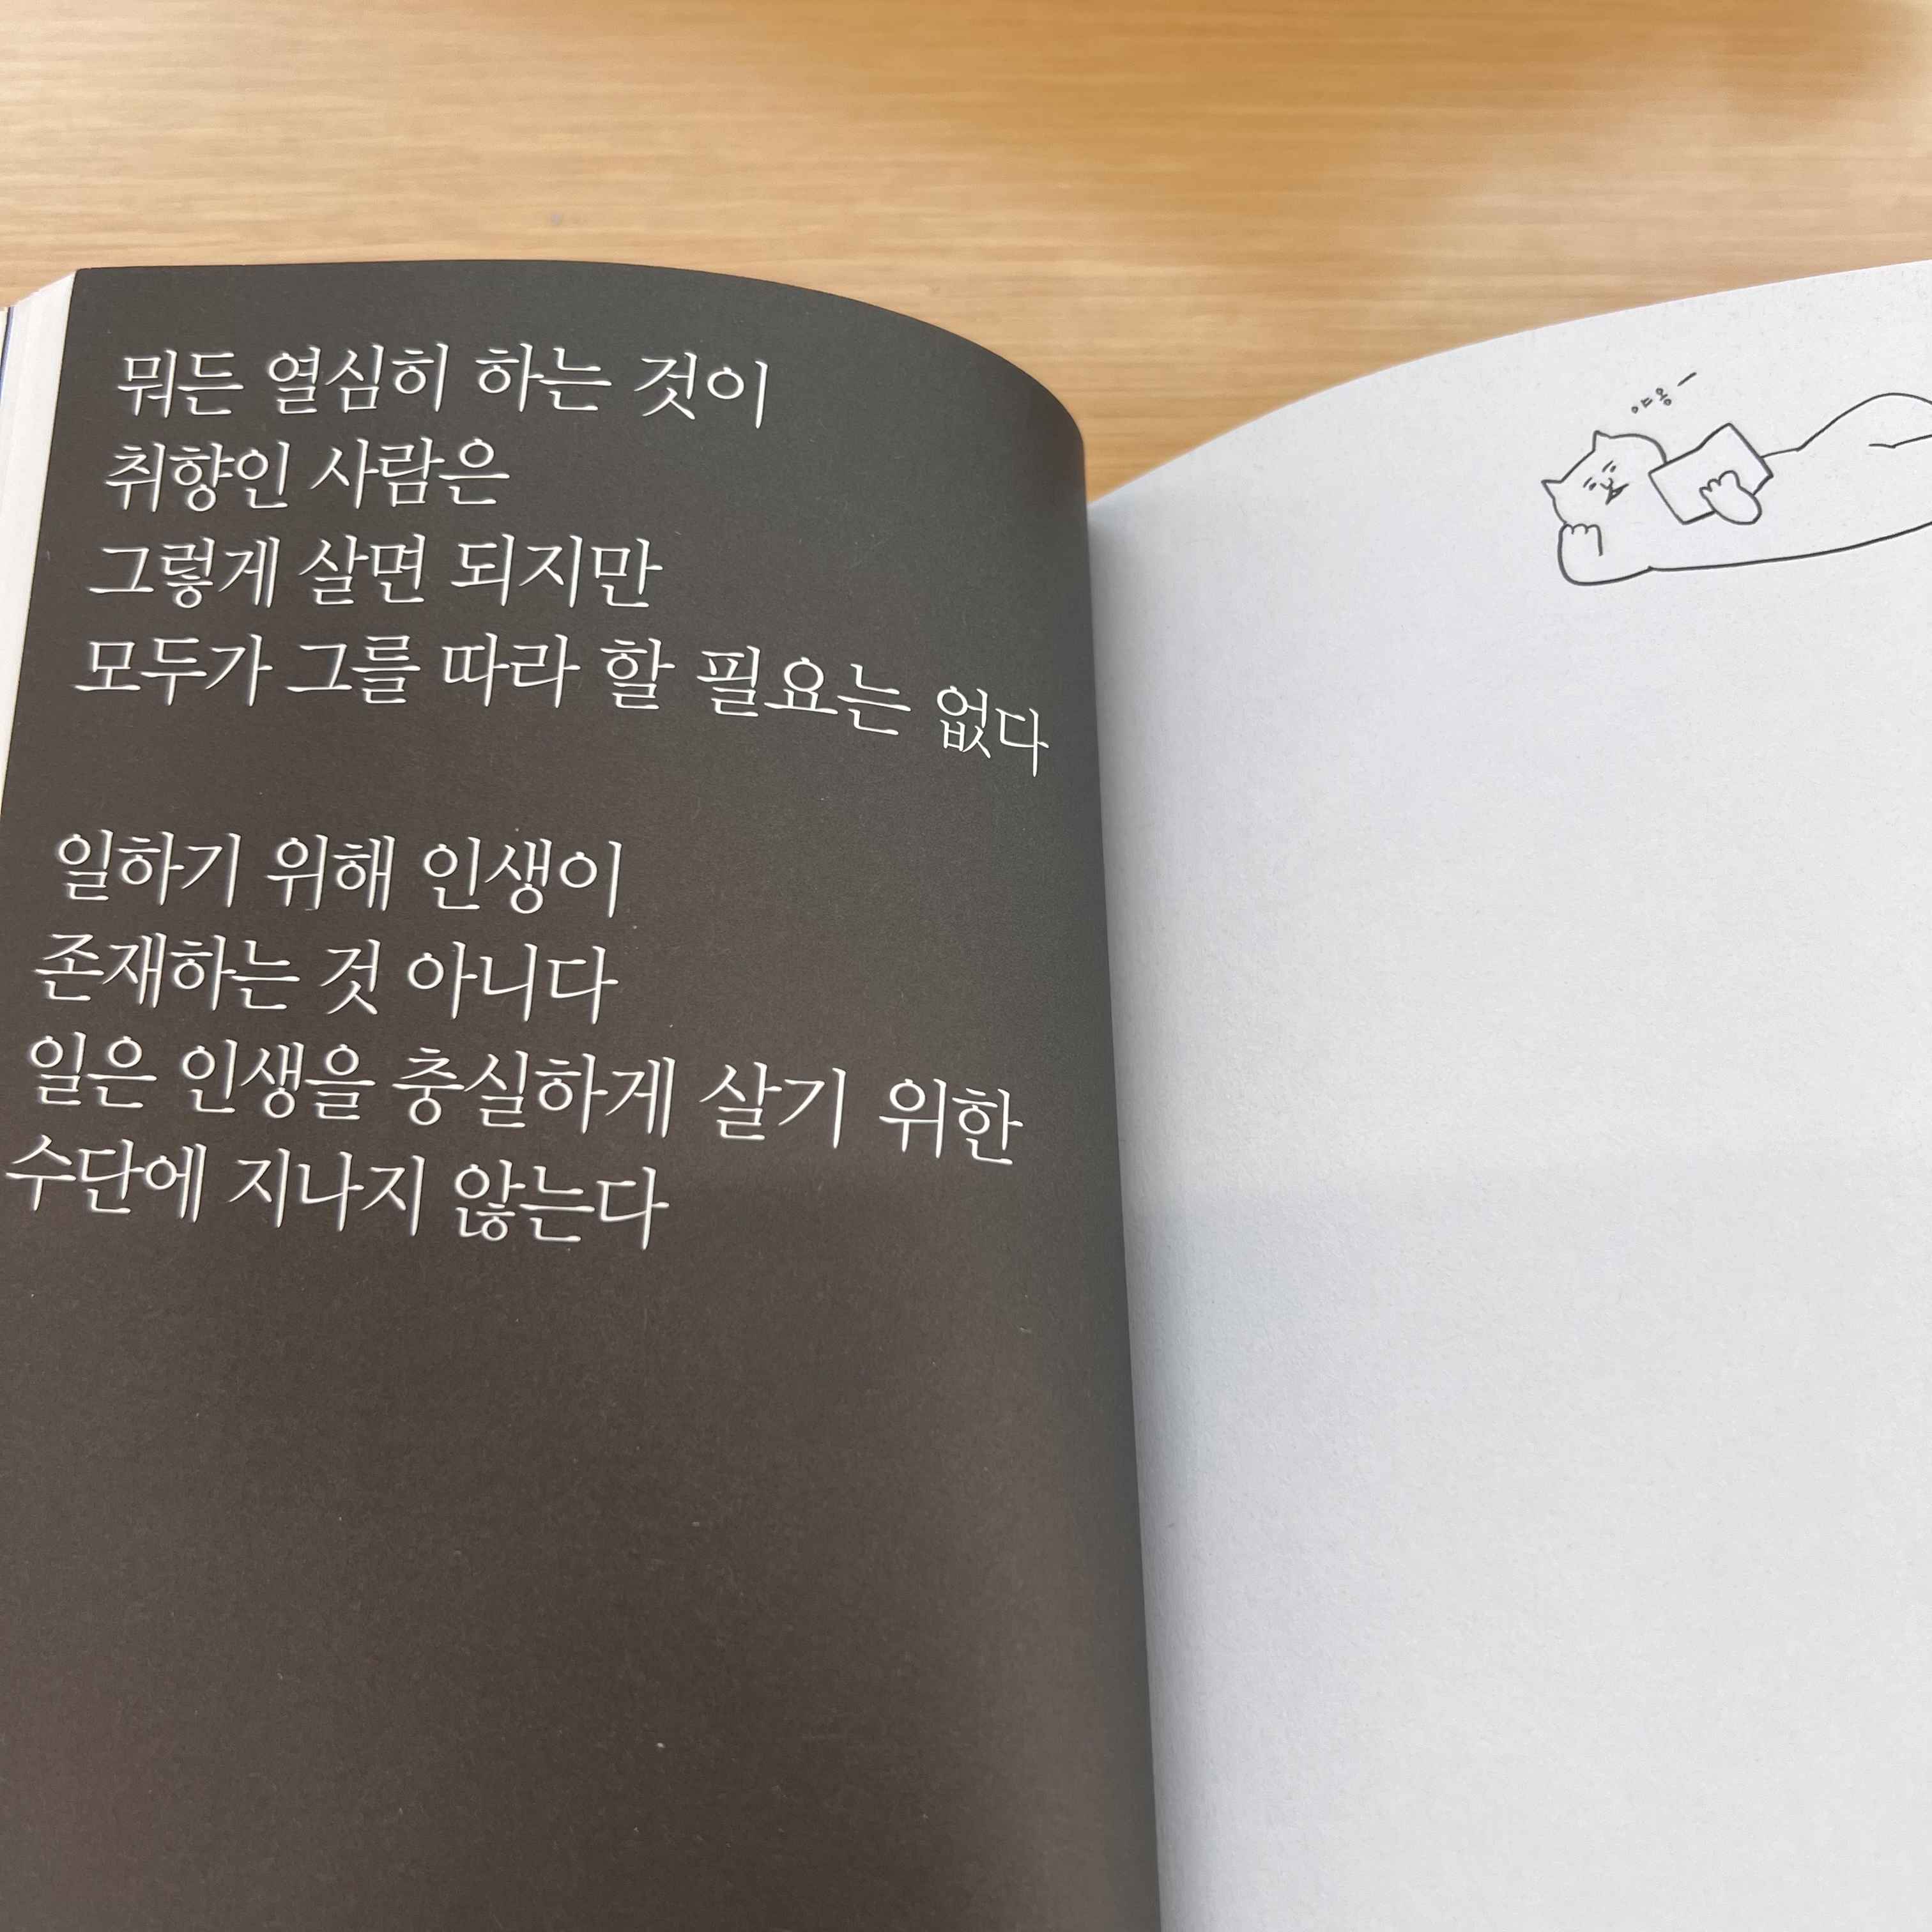 뭐든 열심히 하는 것이
취향인 사람은
그렇게 살면 되지만
모두가 그를 따라 할 필요는 없다
일하기 위해 인생이
존재하는 것 아니다
일은 인생을 충실하게 살기 위한
수단에 지나지 않는다
야옹